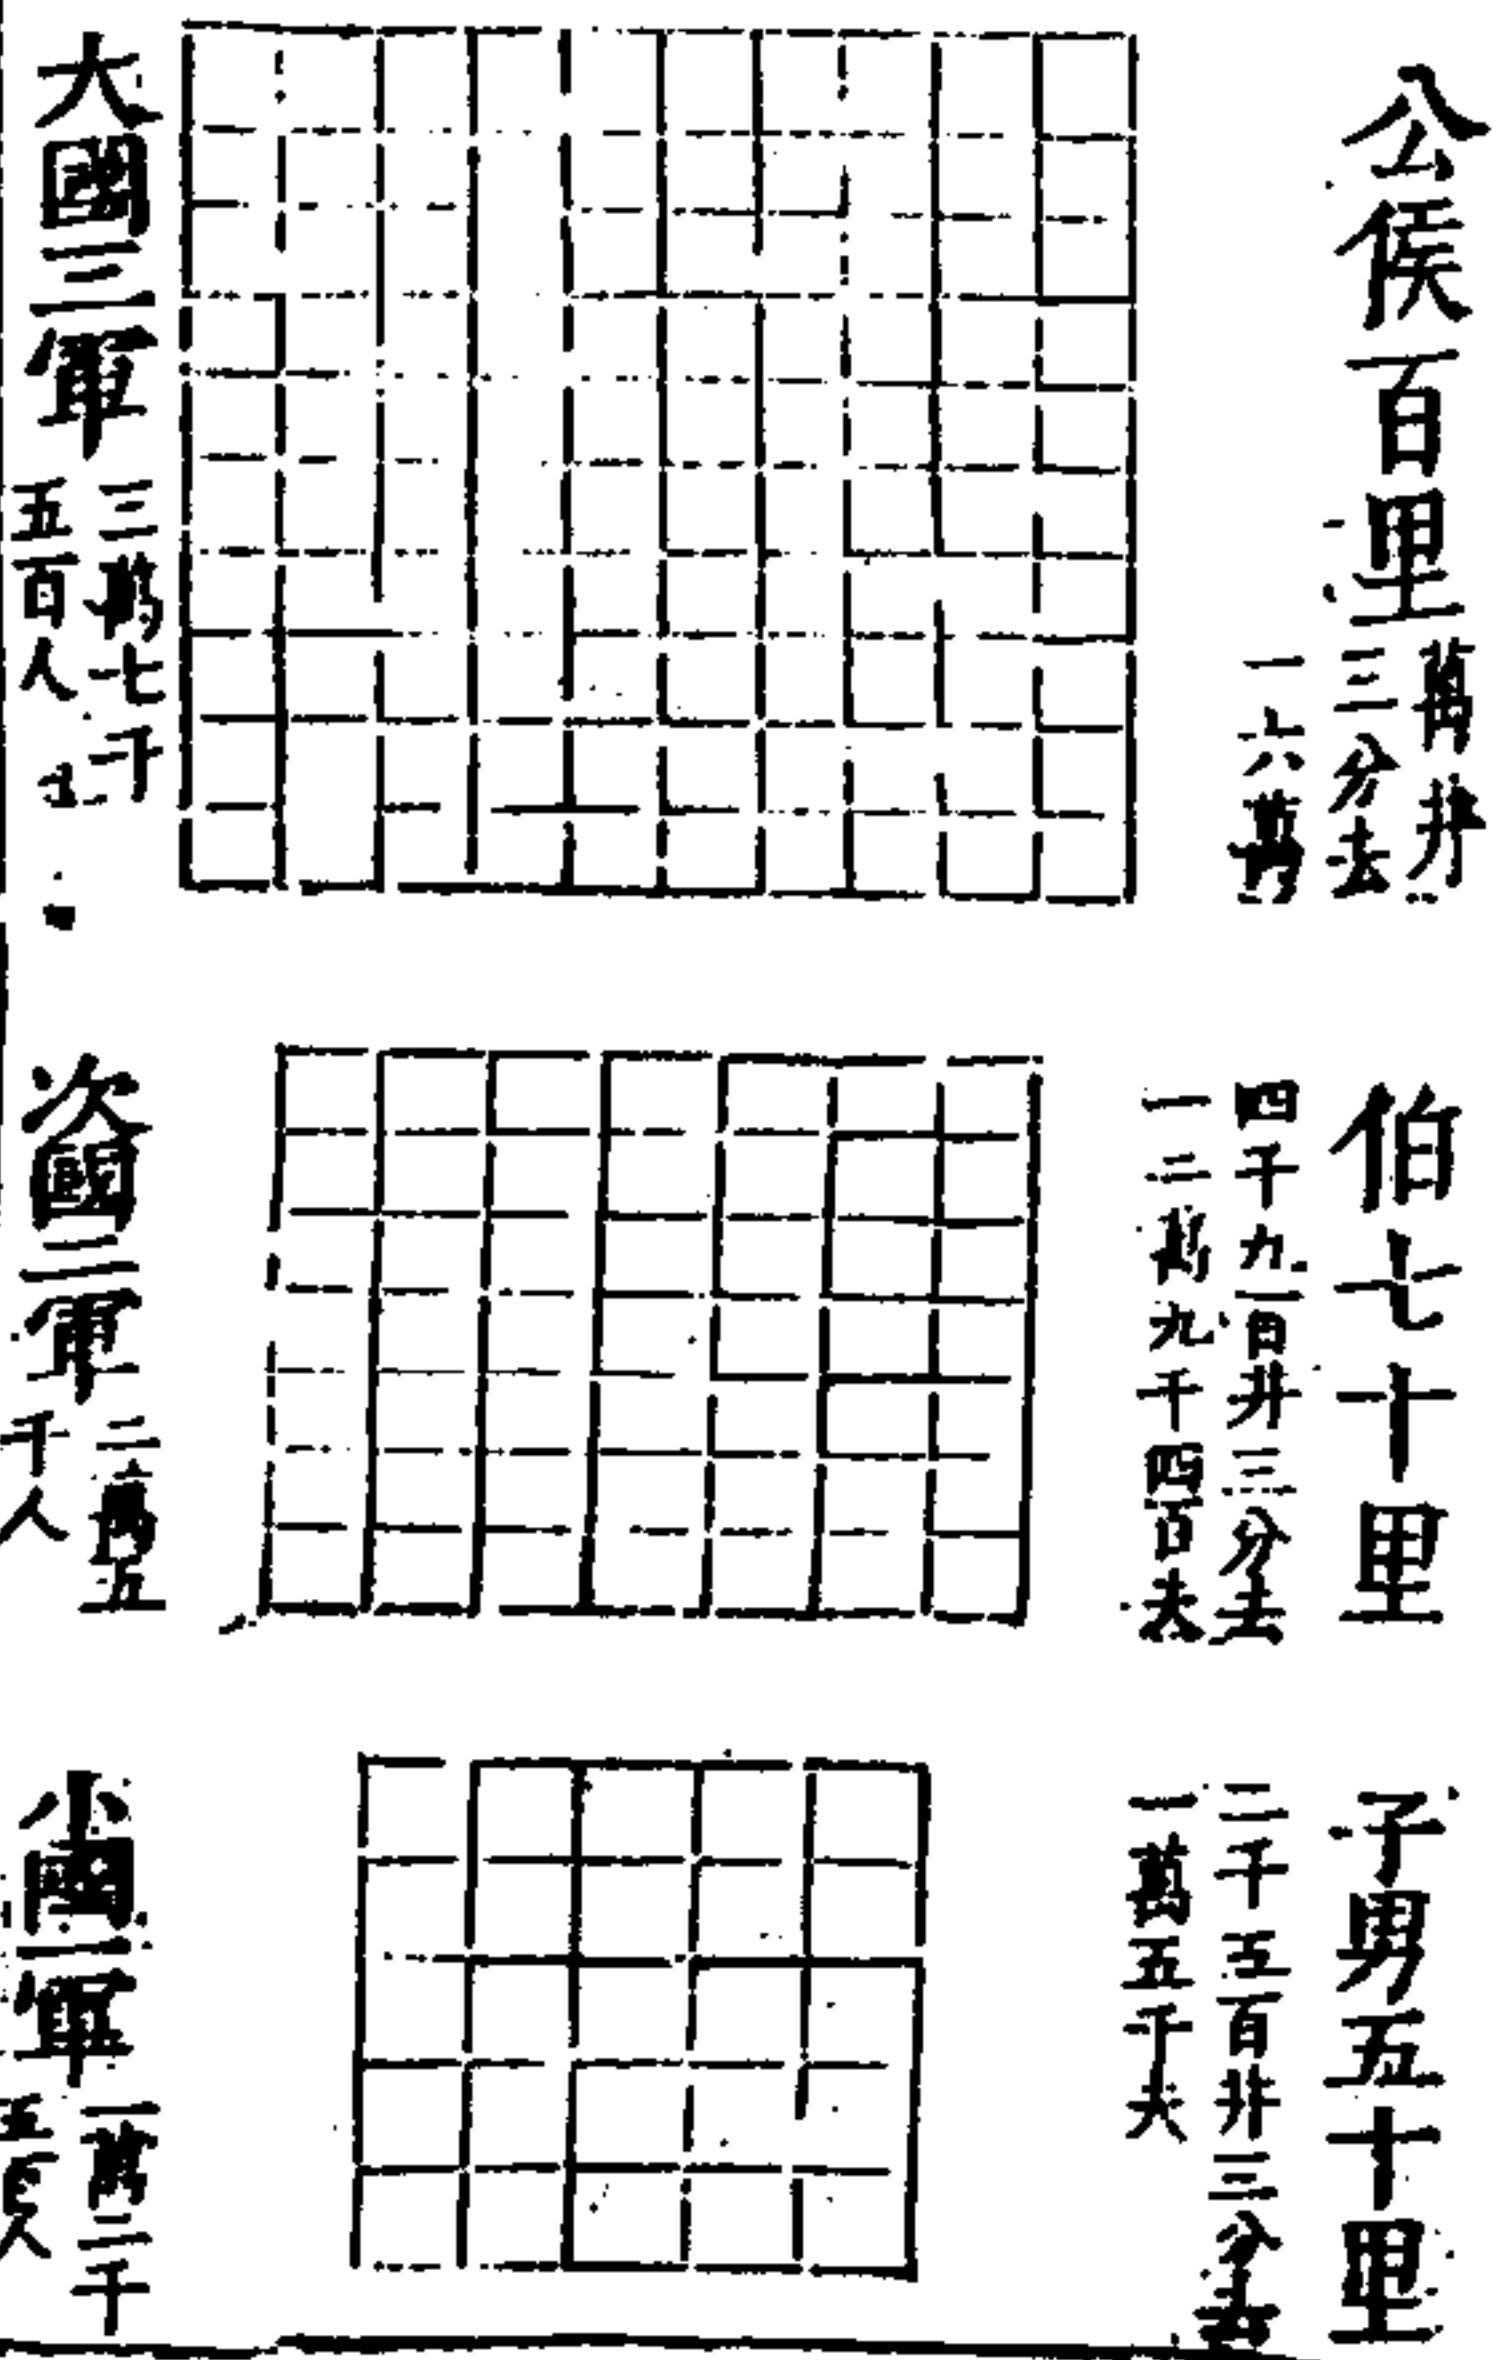 公侯百里
萬井三分去
一六萬
大國三軍
三萬七千
五百人
伯七十里
四千九百井三分去
一二萬九千四百夫
次國二軍
二萬五
千人
子男五十里
二千五百井三分去
一萬五千夫
小國一軍
一萬二千
五百人